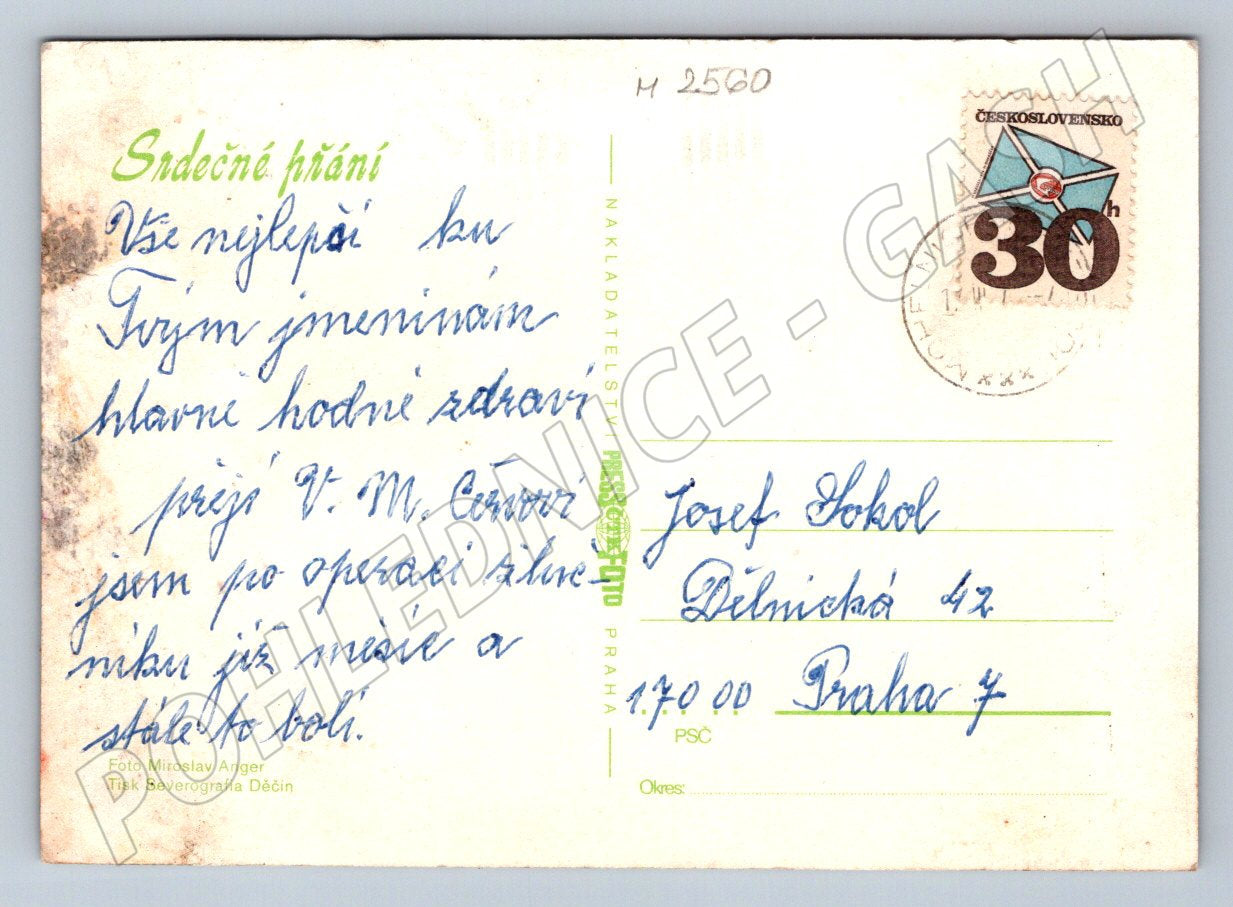 M 2560
ČESKOSLOVENSKO
30 h
Srdečné přání
Vše nejlepší ku
Tvým jmeninám
hlavně hodně zdraví
přejí V. M.
jsem po operaci žluč-
níku již měsíc a
stále to bolí.
Foto Miroslav Anger
Tisk Severografia Děčín
NAKLADATELSTVÍ PRESSFOTO PRAHA
ČTK
Josef Sokol
Dělnická 42
170 00 Praha 7
PSČ
Okres:
POHLEDNICE - GASH